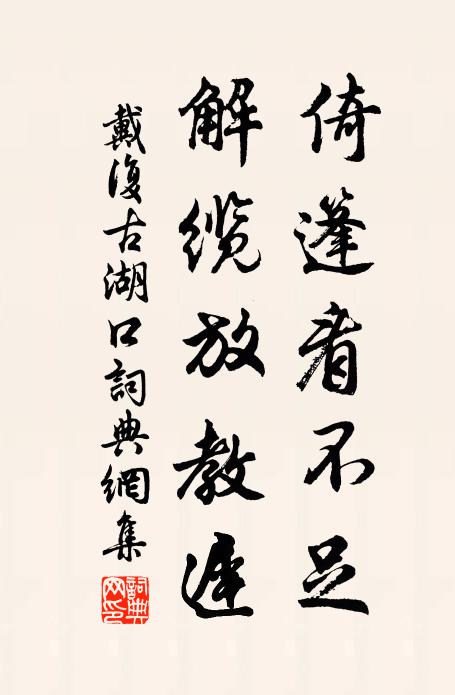 倚篷看不足
解缆放教遲
戴復古湖口詞典網集
詞典网印